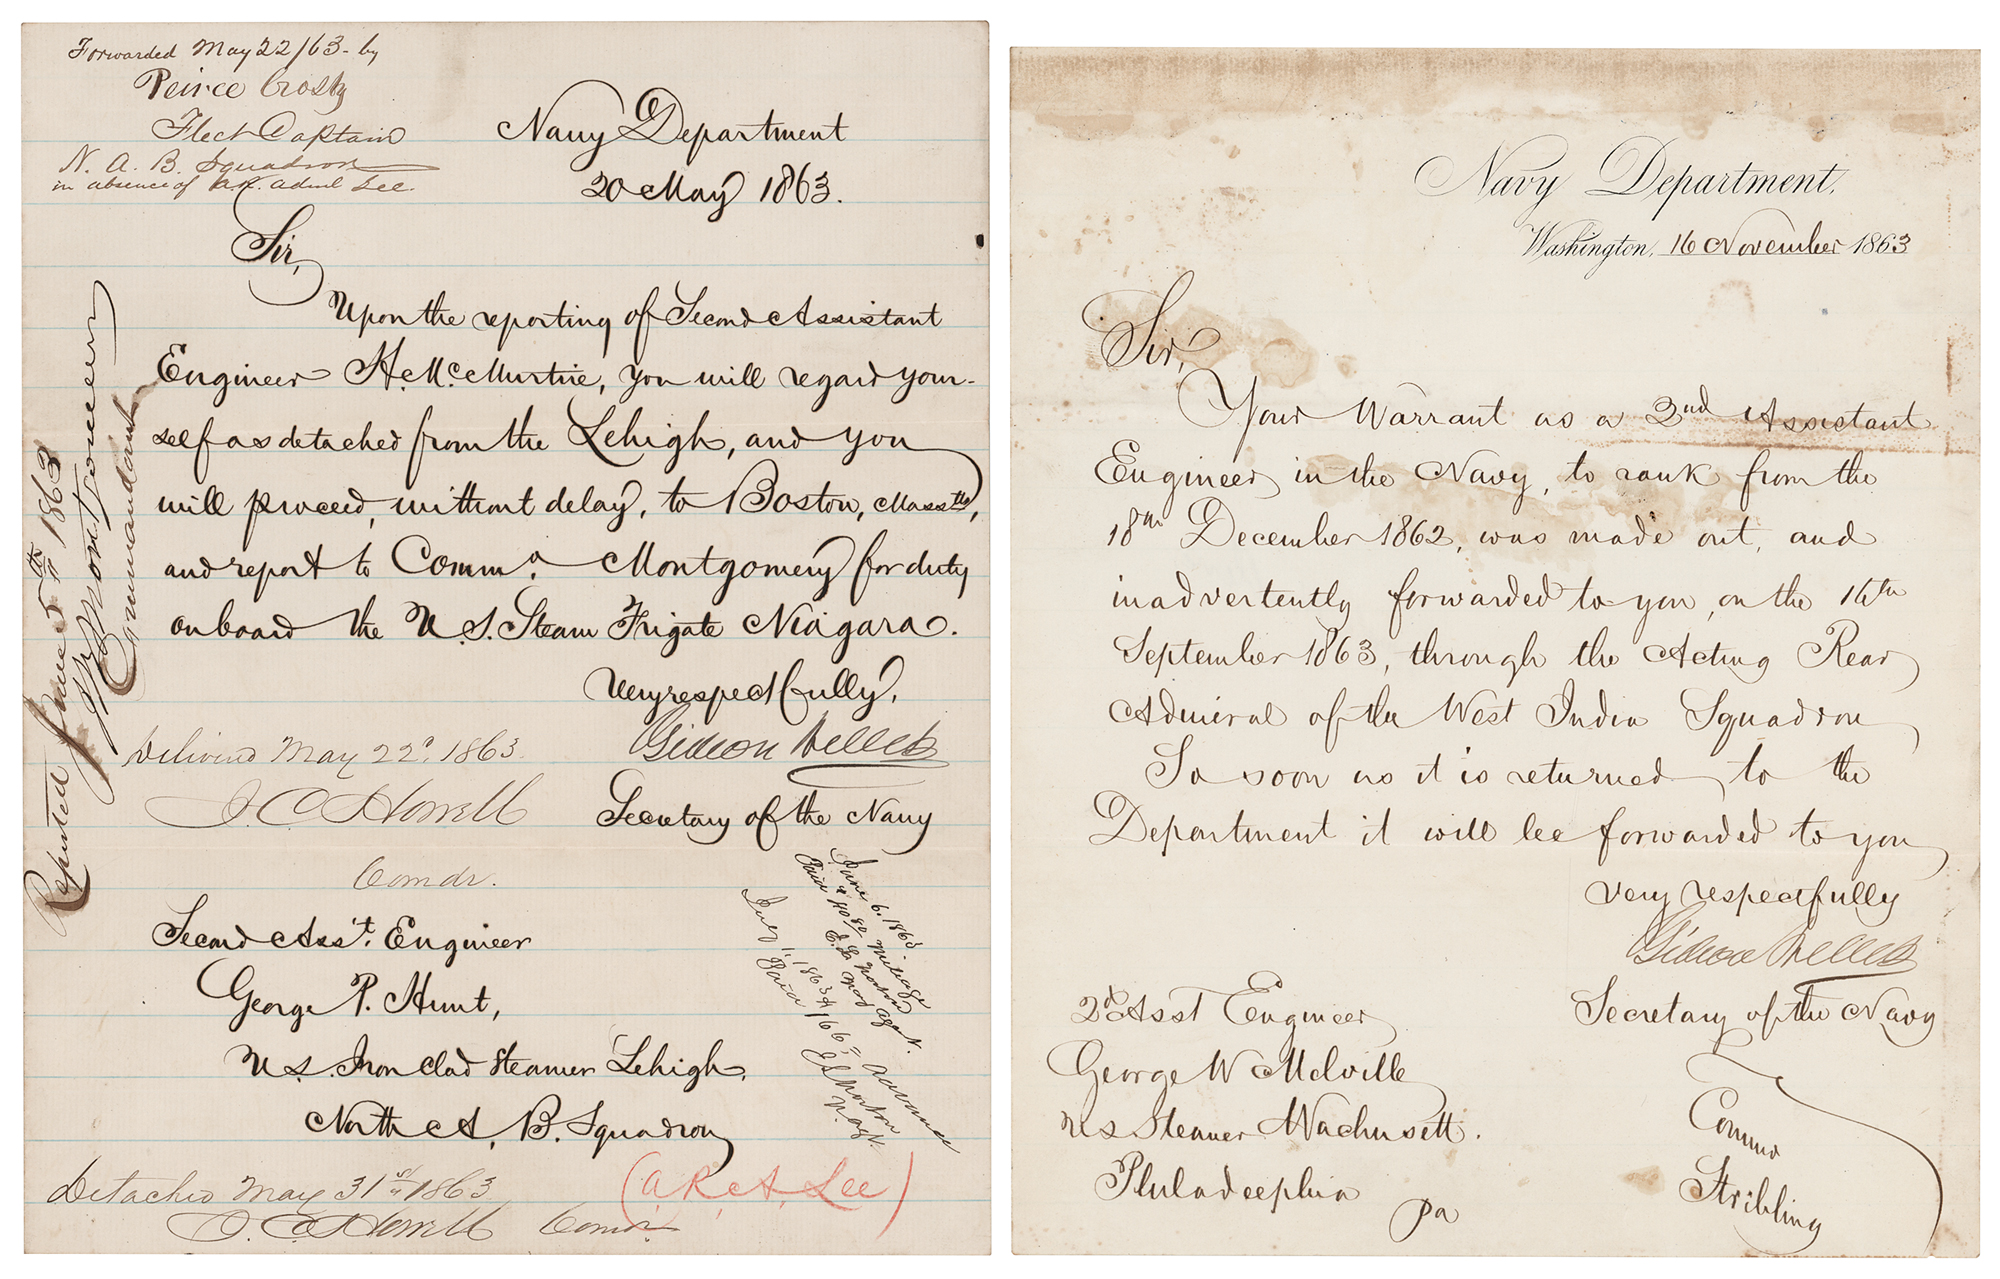 Forwarded May 22/63 - by
Peirce Crosby
Fleet Captain
N. A. B. Squadron
in absence of A.R. Adml Lee.
Navy Department
20 May 1863.
Sir,
Upon the reporting of Second Assistant
Engineer H. McMurtrie, you will regard your-
self as detached from the Lehigh, and you
will proceed, without delay, to Boston, Massts,
and report to Commo. Montgomery for duty
on board the U.S. Steam Frigate Niagara.
Very respectfully,
Gideon Welles
Secretary of the Navy
Delivered May 22d. 1863.
J. C. Howell
Comdr.
Second Asst. Engineer
George P. Hunt,
U.S. Iron Clad Steamer Lehigh,
North A. B. Squadron
(A. R. A. Lee)
Detached May 31st 1863
J. C. Howell Comdr.
Reported June 5th 1863
Montgomery
Commandant
June 6. 1863.
Paid $ 40 80/ Mileage
July 1, 1863
Paid $ 166 Advance
Navy Department,
Washington, 16 November 1863
Sir,
Your Warrant as a 2nd Assistant
Engineer in the Navy, to rank from the
18th December 1862, was made out, and
inadvertently forwarded to you, on the 16th
September 1863, through the Acting Rear
Admiral of the West India Squadron
So soon as it is returned to the
Department it will be forwarded to you
very respectfully
Gideon Welles
Secretary of the Navy
2d Asst Engineer
George W Melville
US Steamer Wachusett.
Philadeephia
Pa
Commo
Stribling